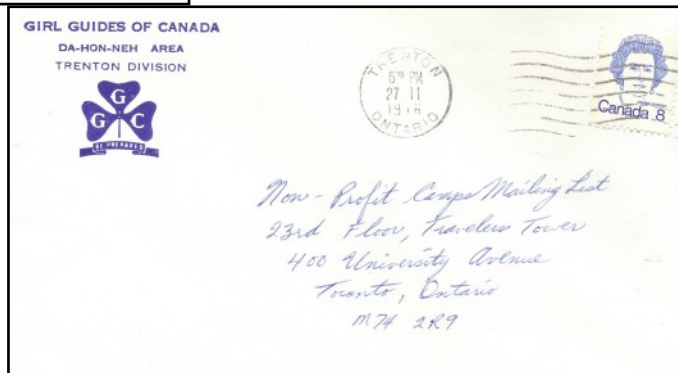 GIRL GUIDES OF CANADA
DA-HON-NEH AREA
TRENTON DIVISION
G
G C
BE PREPARED
TRENTON
6 PM
27 11
ONTARIO
Canada 8
Non-Profit Camps Mailing List
23rd Floor, Travelers Tower
400 University Avenue
Toronto, Ontario
M74 2R9